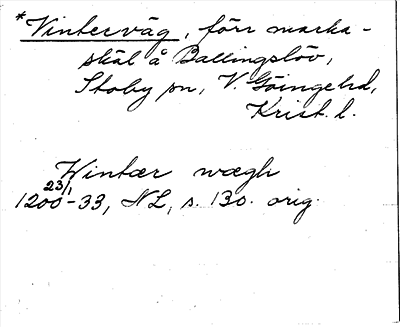 *Vinterväg, förr marka-
skäl å Ballingslöv,
Stoby sn, V. Göingehd,
Krist. l.
Wintær wægh
23/1 1200-33, NL, s. 130. orig.